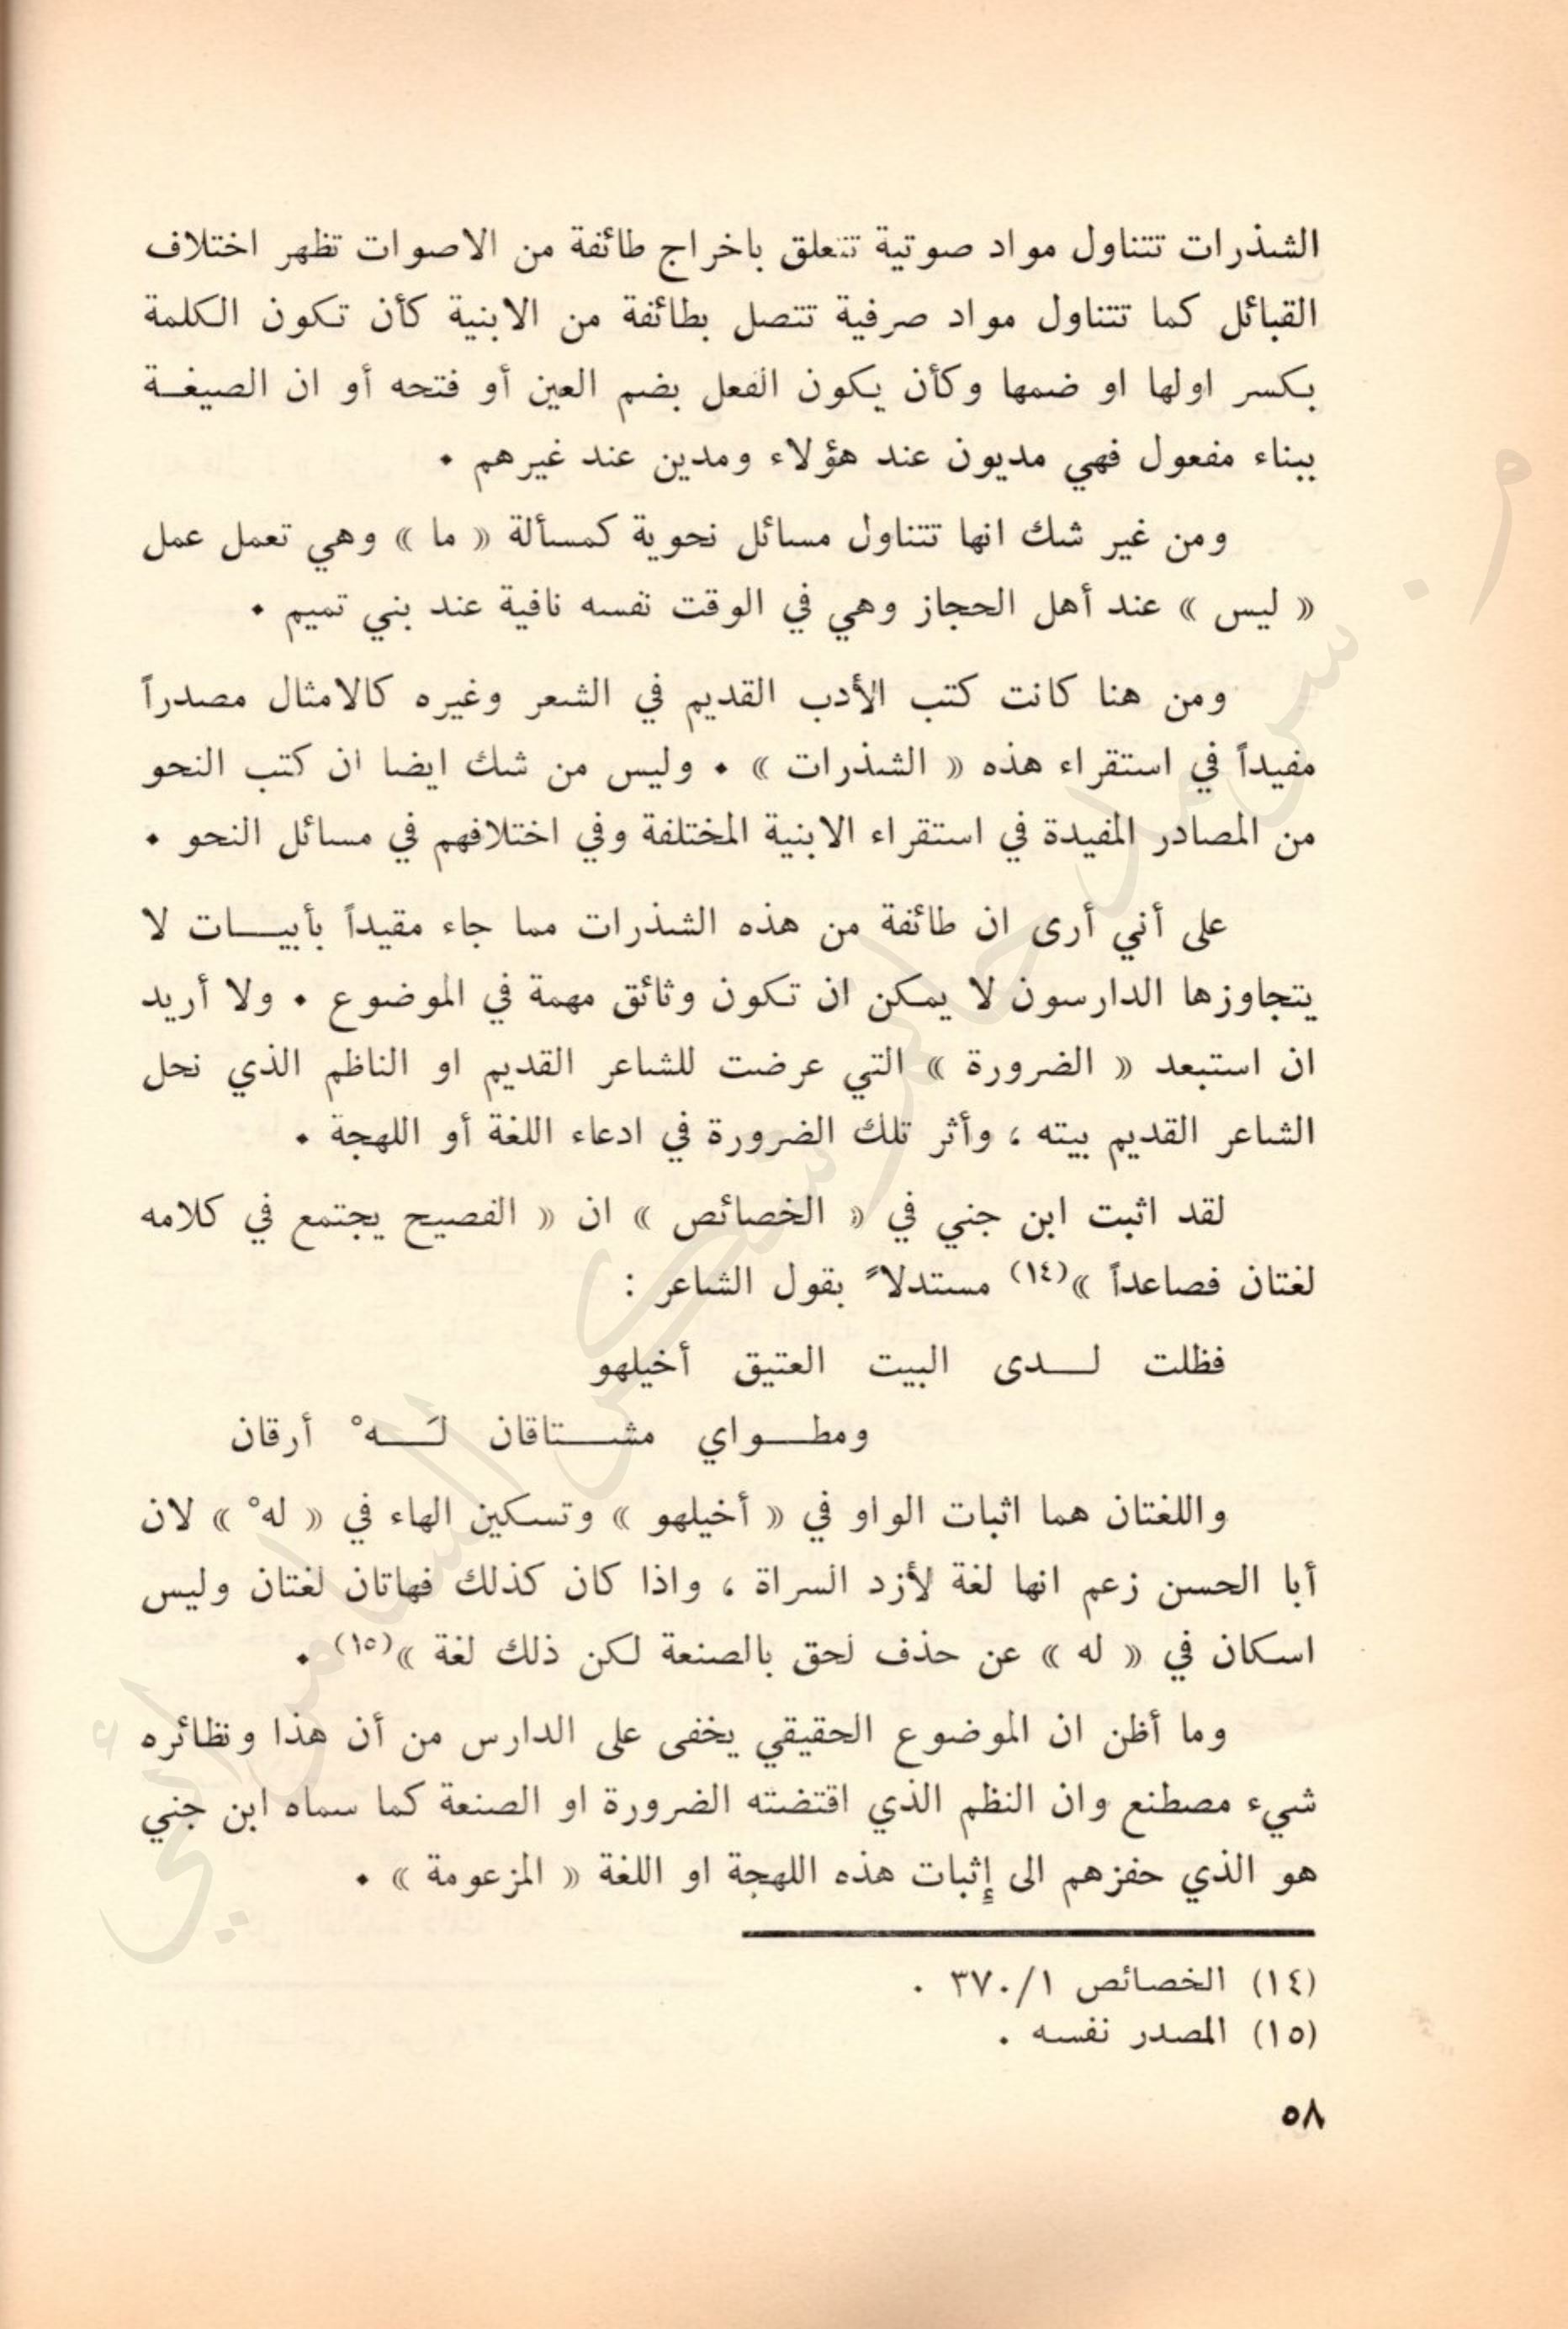 الشذرات تتناول مواد صوتية تتعلق باخراج طائفة من الاصوات تظهر اختلاف
القبائل كما تتناول مواد صرفية تتصل بطائفة من الابنية كأن تكون الكلمة
بكسر اولها او ضمها وكأن يكون الفعل بضم العين أو فتحه أو ان الصيغة
ببناء مفعول فهي مديون عند هؤلاء ومدين عند غيرهم .
ومن غير شك انها تتناول مسائل نحوية كمسألة « ما » وهي تعمل عمل
« ليس » عند أهل الحجاز وهي في الوقت نفسه نافية عند بني تميم .
ومن هنا كانت كتب الأدب القديم في الشعر وغيره كالامثال مصدراً
مفيداً في استقراء هذه « الشذرات » . وليس من شك ايضا ان كتب النحو
من المصادر المفيدة في استقراء الابنية المختلفة وفي اختلافهم في مسائل النحو .
على أني أرى ان طائفة من هذه الشذرات مما جاء مقيداً بأبيات لا
يتجاوزها الدارسون لا يمكن ان تكون وثائق مهمة في الموضوع . ولا أريد
ان استبعد « الضرورة » التي عرضت للشاعر القديم او الناظم الذي نحل
الشاعر القديم بيته ، وأثر تلك الضرورة في ادعاء اللغة أو اللهجة .
لقد اثبت ابن جني في « الخصائص » ان « الفصيح يجتمع في كلامه
لغتان فصاعداً »(١٤) مستدلاً بقول الشاعر :
فظلت لدى البيت العتيق أخيلهو
ومطواي مشتاقان لَهْ أرقان
واللغتان هما اثبات الواو في « أخيلهو » وتسكين الهاء في « لهْ » لان
أبا الحسن زعم انها لغة لأزد السراة ، واذا كان كذلك فهاتان لغتان وليس
اسكان في « له » عن حذف لحق بالصنعة لكن ذلك لغة »(١٥) .
وما أظن ان الموضوع الحقيقي يخفى على الدارس من أن هذا ونظائره
شيء مصطنع وان النظم الذي اقتضته الضرورة او الصنعة كما سماه ابن جني
هو الذي حفزهم الى إثبات هذه اللهجة او اللغة « المزعومة » .
(١٤) الخصائص ٣٧٠/١ .
(١٥) المصدر نفسه .
٥٨